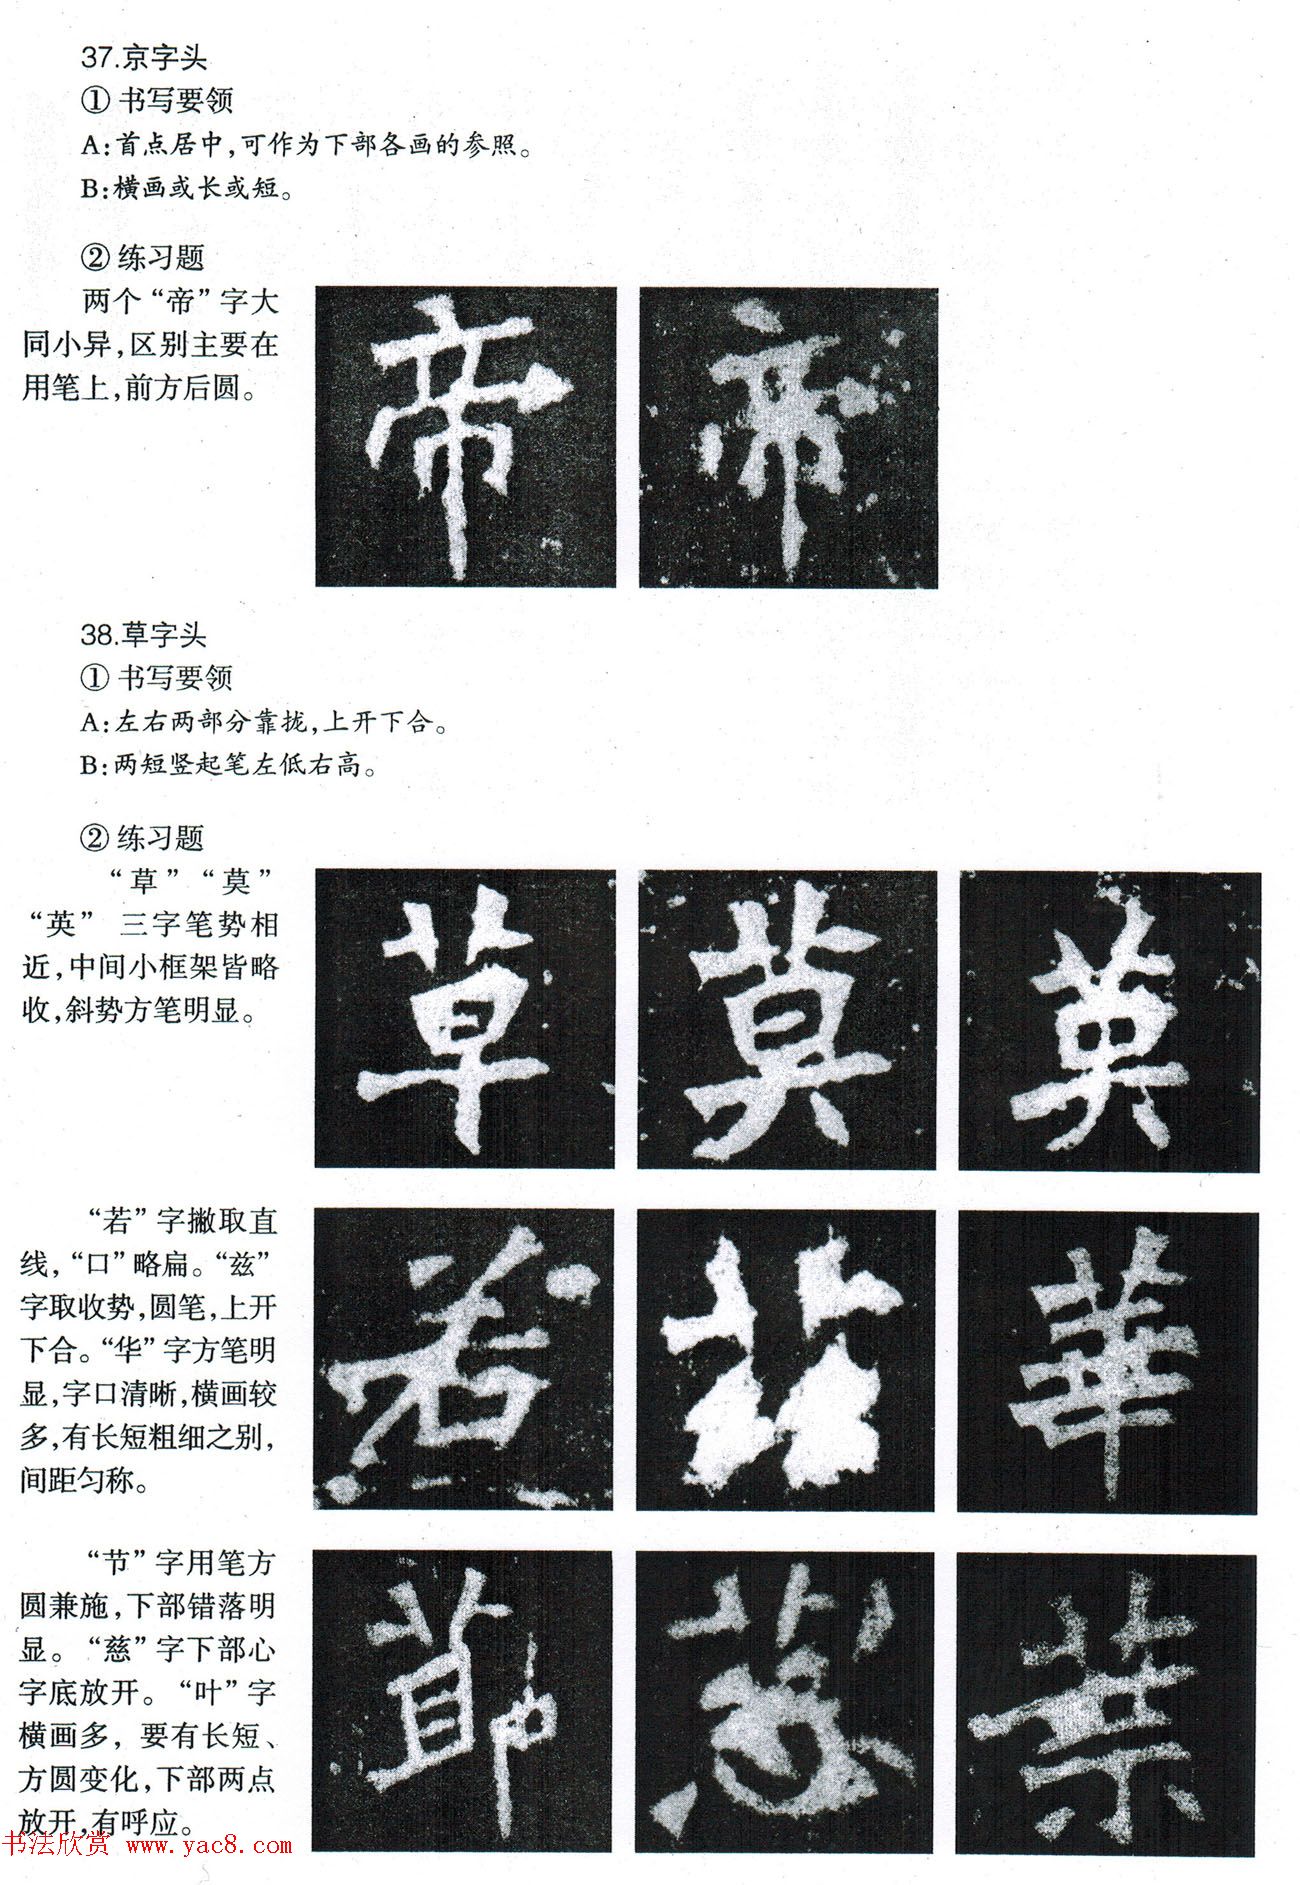 37.京字头
① 书写要领
A:首点居中,可作为下部各画的参照。
B:横画或长或短。
② 练习题
两个“帝”字大
同小异,区别主要在
用笔上,前方后圆。
帝 帝
38.草字头
① 书写要领
A:左右两部分靠拢,上开下合。
B:两短竖起笔左低右高。
② 练习题
“草”“莫”
“英” 三字笔势相
近,中间小框架皆略
收,斜势方笔明显。
草 莫 英
“若”字撇取直
线,“口”略扁。“兹”
字取收势,圆笔,上开
下合。“华”字方笔明
显,字口清晰,横画较
多,有长短粗细之别,
间距匀称。
若 兹 華
“节”字用笔方
圆兼施,下部错落明
显。“慈”字下部心
字底放开。“叶”字
横画多,要有长短、
方圆变化,下部两点
放开,有呼应。
节 慈 葉
书法欣赏 www.yac8.com